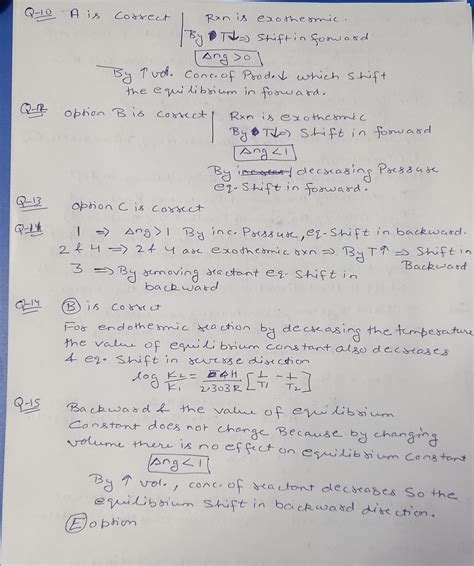 Q-10 A is correct | Rxn is exothermic.
By T↓ => Shift in forward
Δng>0
By ↑ vol. Conc. of Prod.↓ which shift
the equilibrium in forward.
Q-12 option B is correct | Rxn is exothermic
By T↓ => Shift in forward
Δng<1
By decreasing Pressure
eq. Shift in forward.
Q-13 option C is correct
1 => Δng>1 By inc. Pressure, eq. Shift in backward.
2 & 4 => 2 & 4 are exothermic rxn => By T↑ => Shift in
Backward
3 => By removing reactant eq. Shift in
backward
Q-14 (B) is correct
For endothermic reaction by decreasing the temperature
the value of equilibrium constant also decreases
& eq. Shift in reverse direction
log K2/K1 = ΔH/2.303R [1/T1 - 1/T2]
Q-15 Backward & the value of equilibrium
Constant does not change Because by changing
volume there is no effect on equilibrium constant
Δng<1
By ↑ vol., conc. of reactant decreases So the
equilibrium Shift in backward direction.
(E) option